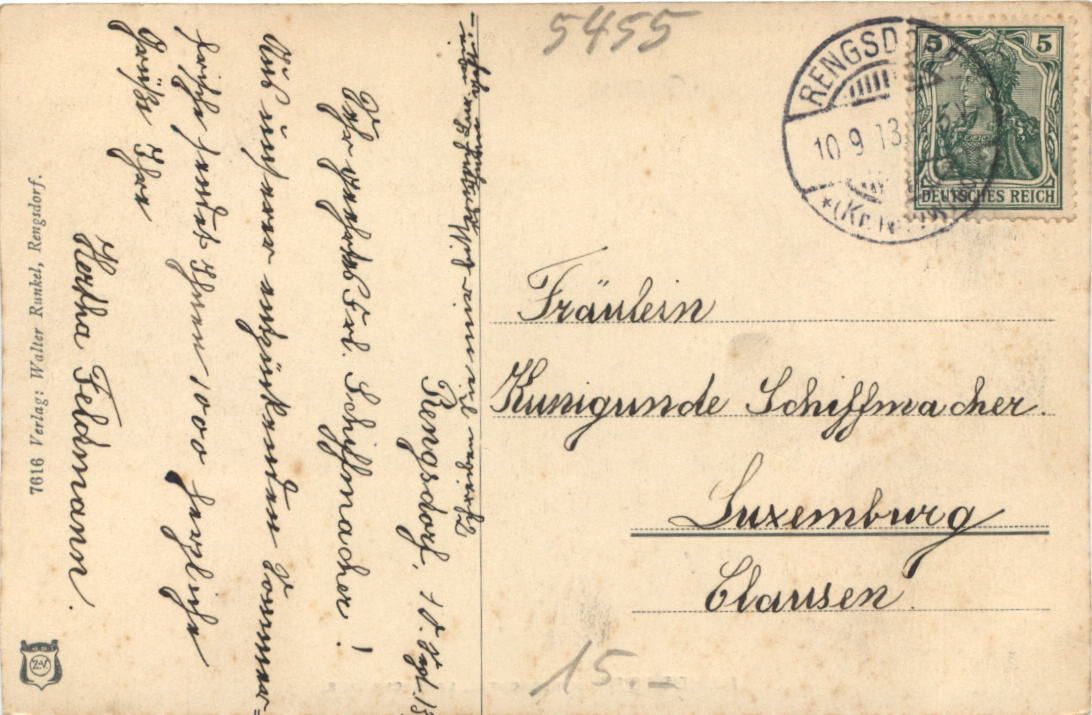 5455
5 5
DEUTSCHES REICH
RENGSDORF
10.9.13
*(Kr.
Fräulein
Kunigunde Schiffmacher.
Luxemburg
Clausen.
15-
Rengsdorf, 10. Sept. 13
Sehr geehrtes Frl. Schiffmacher!
Aus unserer entzückenden Sommer=
frische sendet Ihnen 1000 herzliche
Grüße Ihre
Hertha Feldmann.
7616 Verlag: Walter Runkel, Rengsdorf.